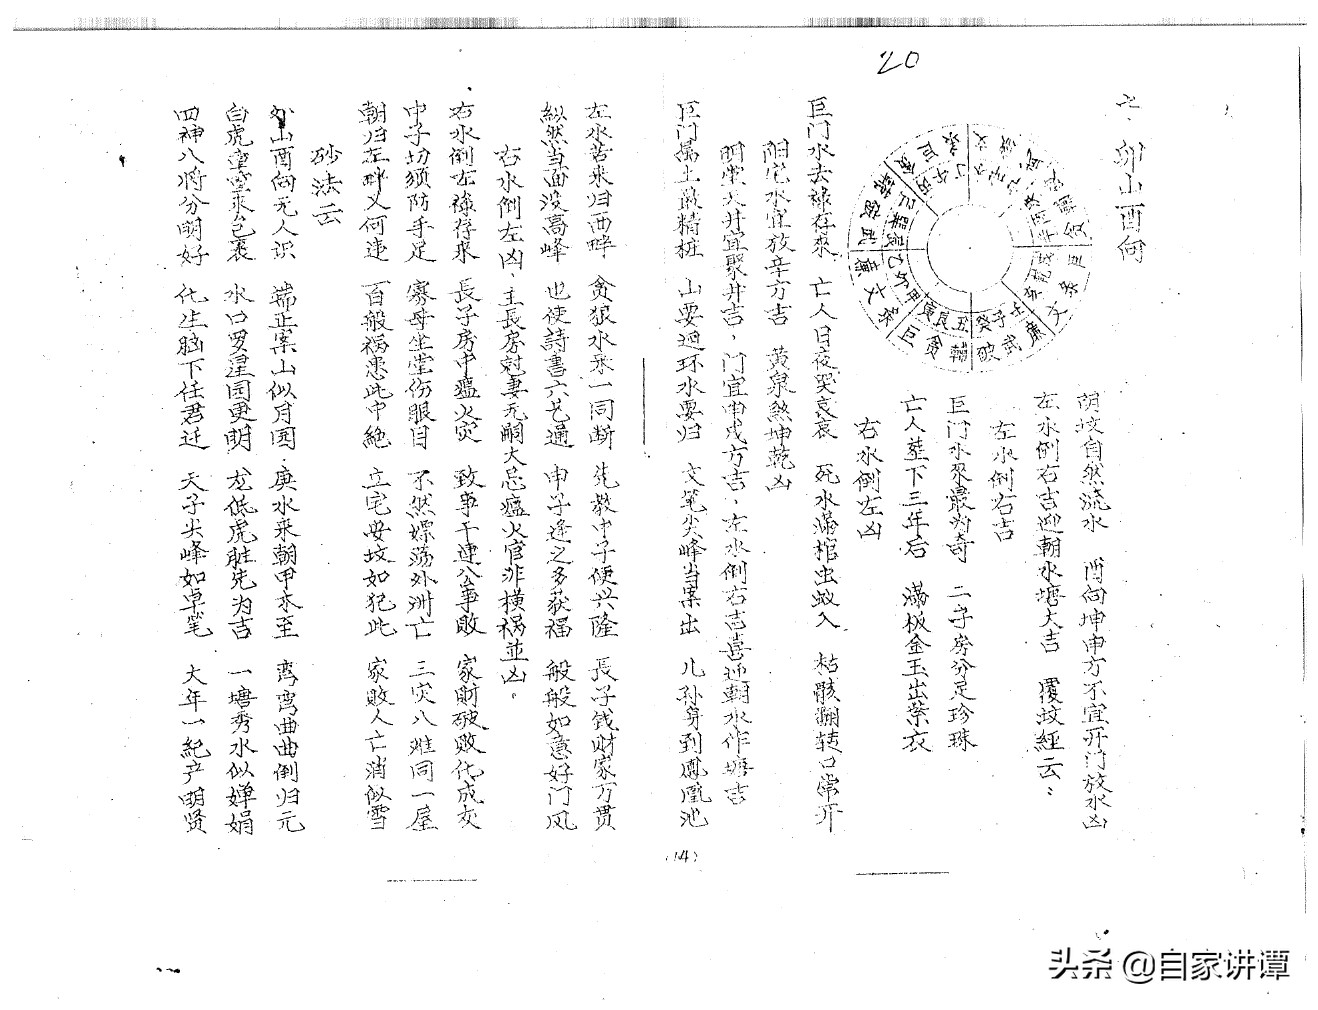 20
七、卯山酉向
阴坟自然流水 酉向坤申方不宜开门放水凶
左水倒右吉迎朝水塘大吉 覆坟经云：
左水倒右吉
巨门水来最为奇 二子房分足珍珠
亡人葬下三年后 满板金玉出紫衣
右水倒左凶
巨门水去禄存来 亡人日夜哭哀哀 死水满棺虫蚁入 枯骸翻转口常开
阳宅水宜放辛方吉 黄泉煞坤乾凶
明堂天井宜聚井吉，门宜申戌方吉，左水倒右吉喜迎朝水作塘吉
巨门属土最精桩 山要迴环水要归 文笔尖峰当案出 儿孙身到凤凰池
左水苦来归西畔 贪狼水来一同断 先教中子便兴隆 長子钱财家万贯
纵然当面没高峰 也使詩書六艺通 申子逢之多获福 般般如意好门风
右水倒左凶，主長房尅妻无嗣大忌瘟火官非横祸並凶。
右水倒左禄存来 長子房中瘟火灾 致事干連公事败 家財破败化成灰
中子切须防手足 寡母坐堂伤眼目 不然嫖荡外洲亡 三灾八难同一屋
朝归左畔又何違 百般福患此中絶 立宅安坟如犯此 家败人亡消似雪
砂法云
卯山酉向无人识 端正案山似月圆 庚水来朝甲木至 弯弯曲曲倒归元
白虎重重来包裹 水口罗星园更明 龙低虎脏先为吉 一塘秀水似婵娟
四神八将分明好 化生脑下任君迁 天子尖峰如卓笔 大年一紀产明贤
(14)
头条 @自家讲谭